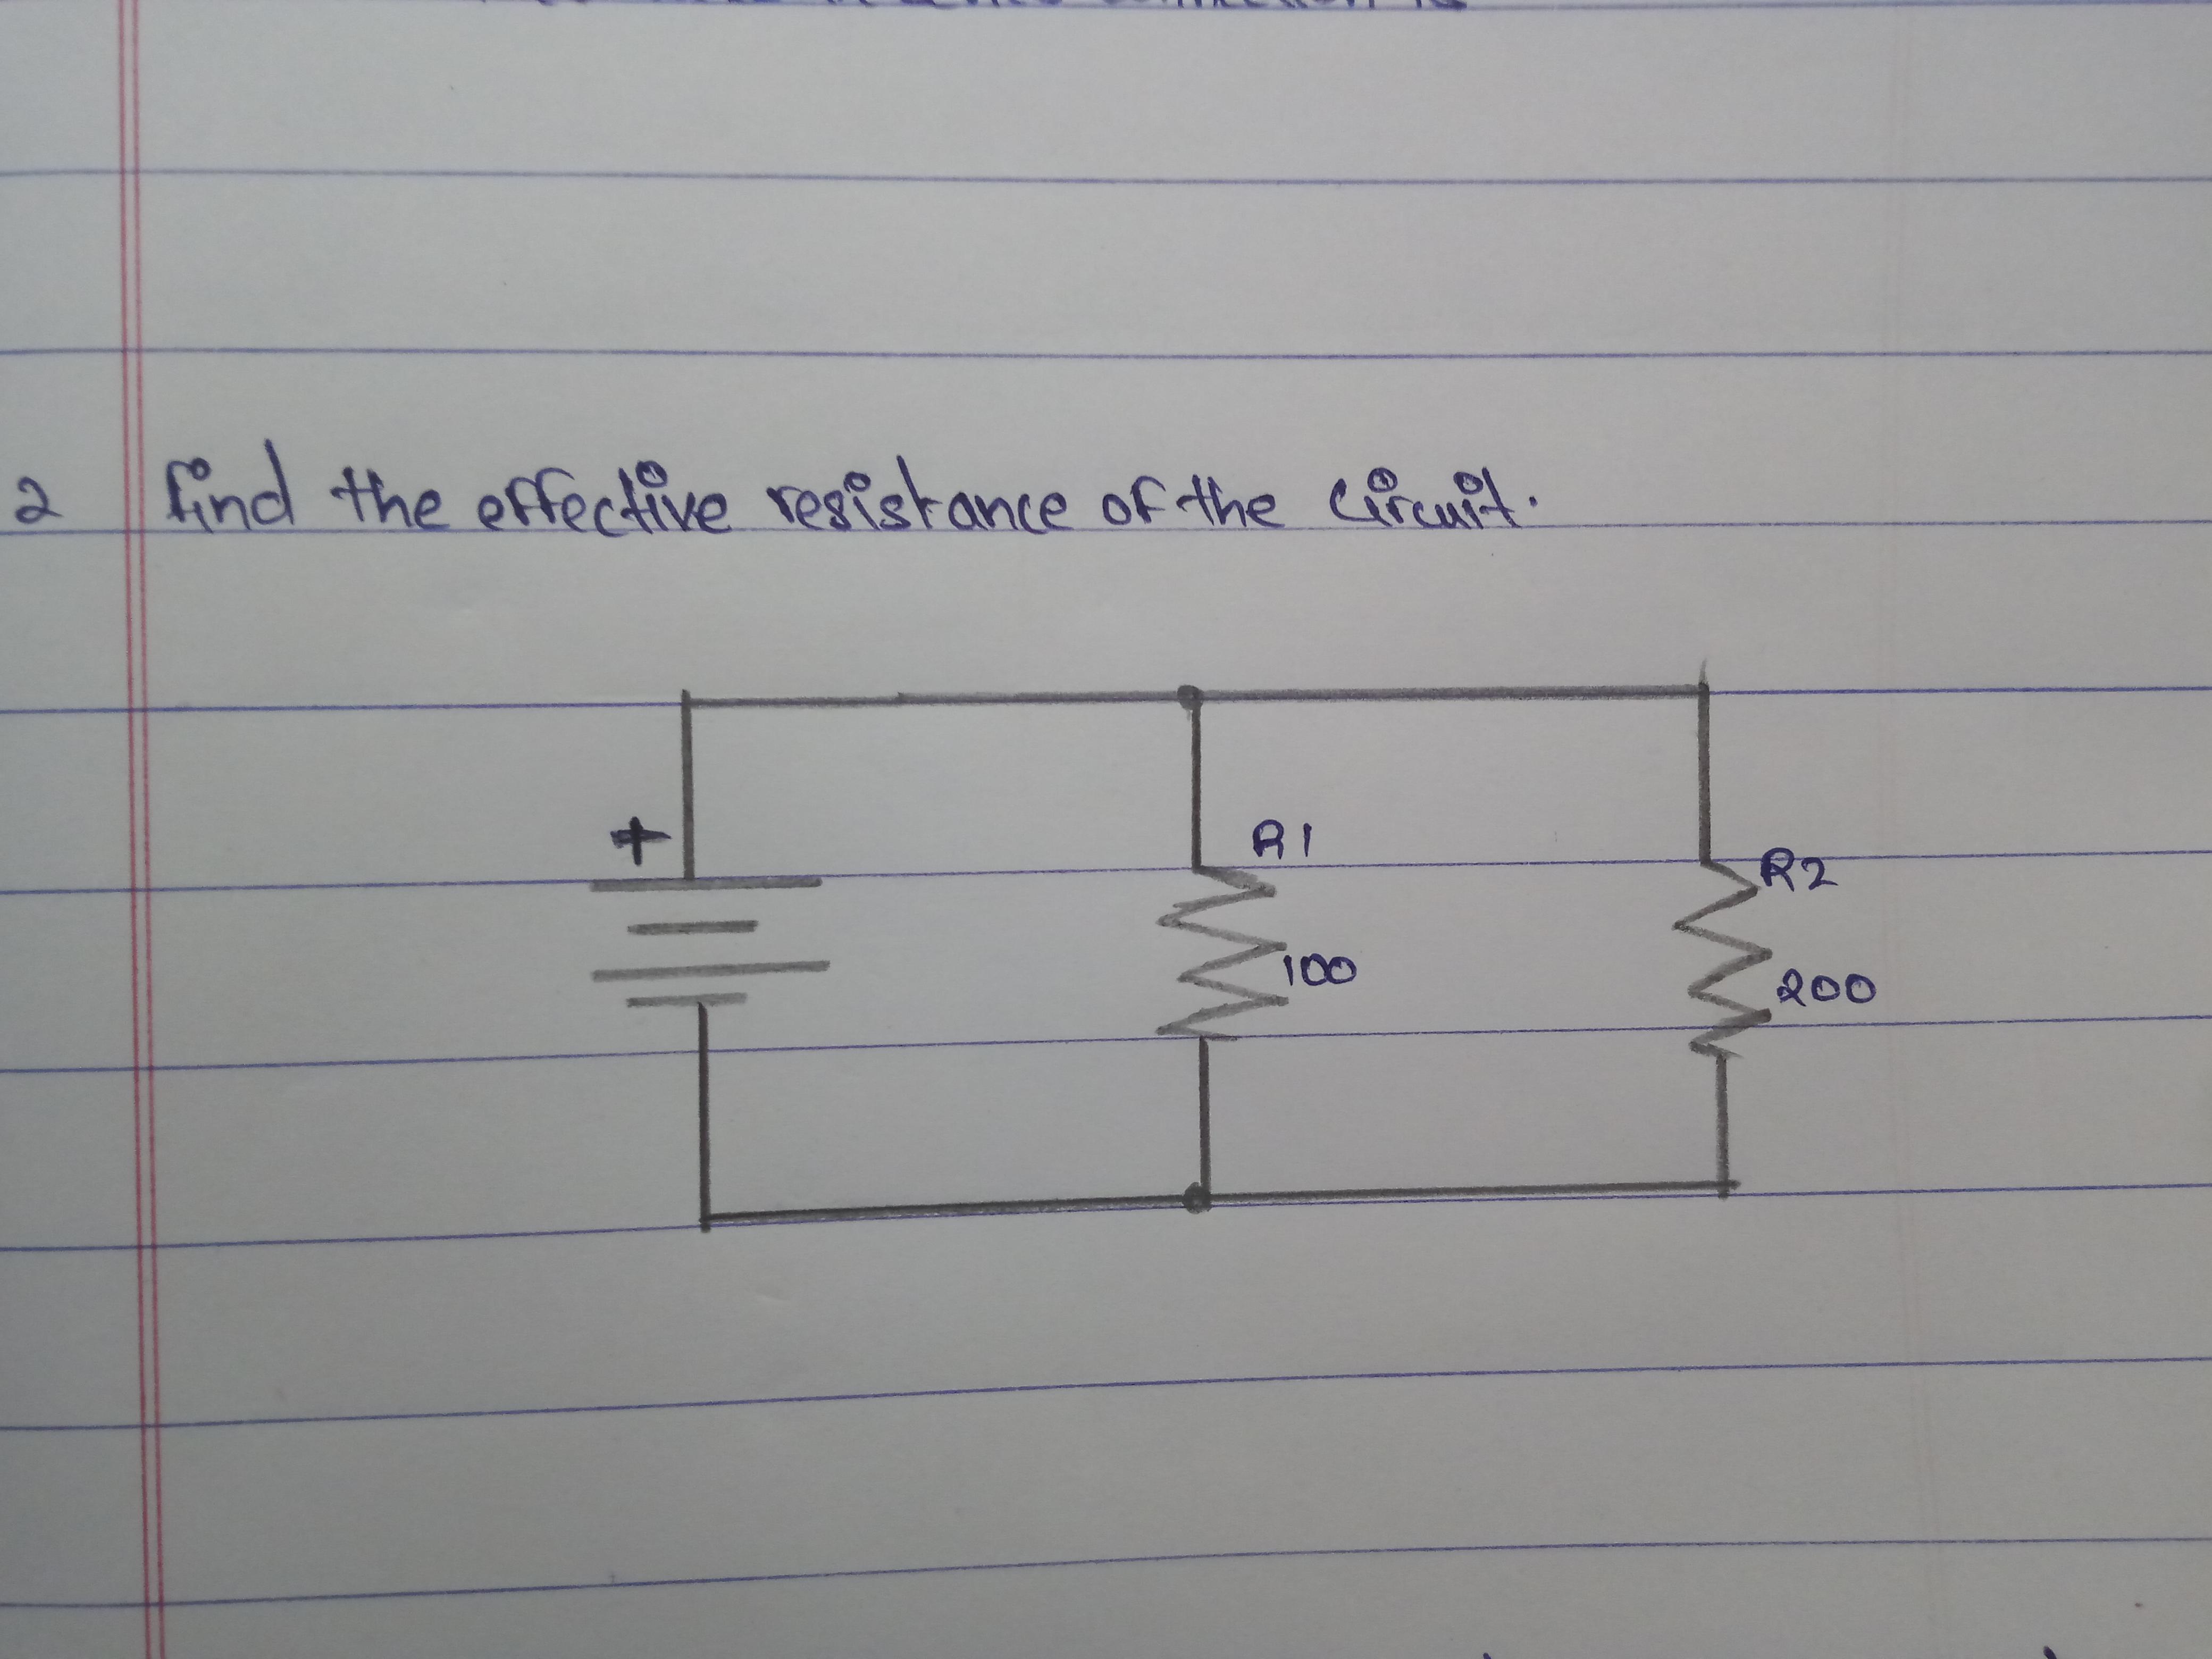 2 find the effective resistance of the circuit.
+
R1
R2
100
200